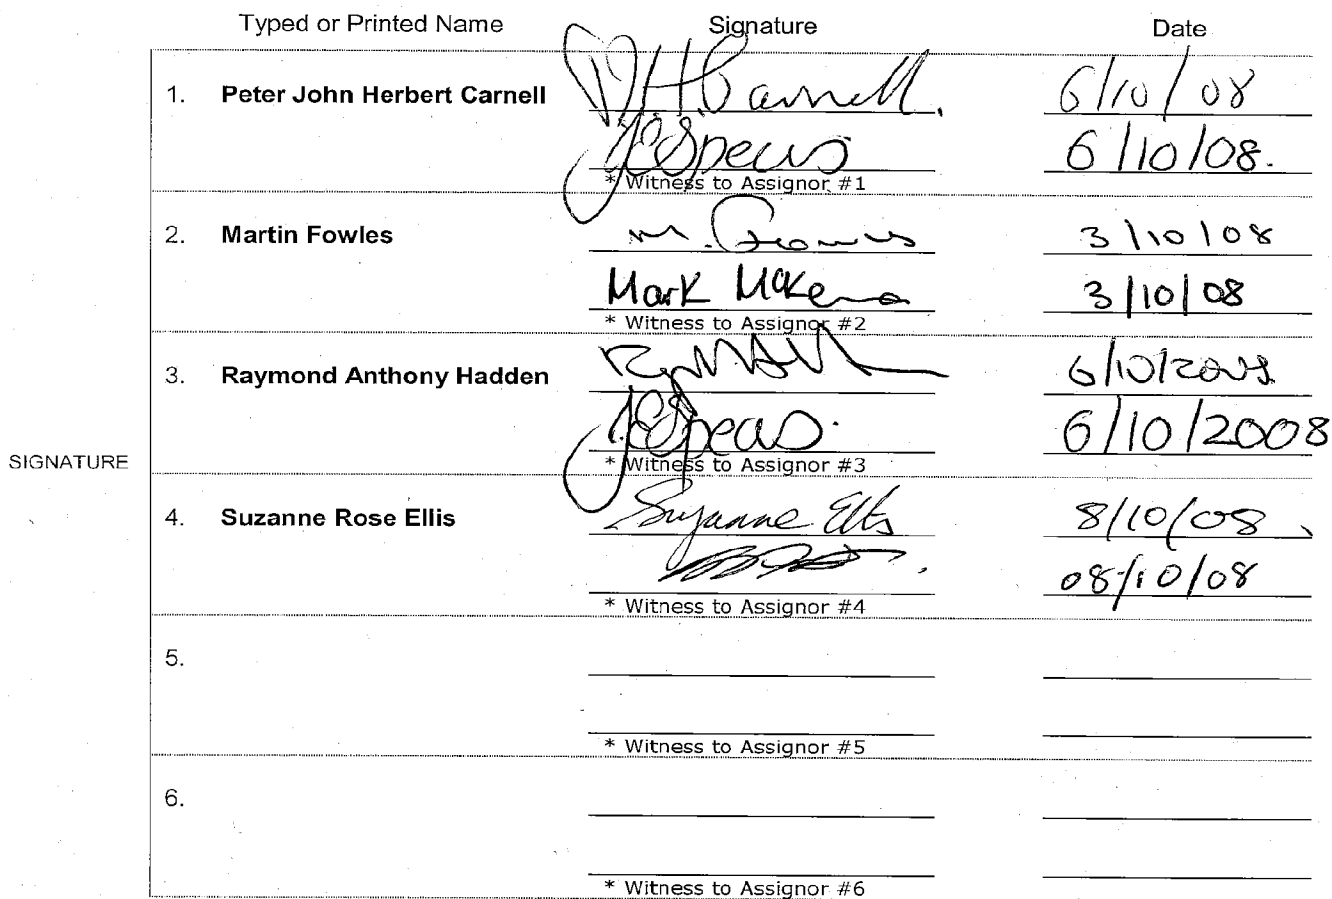 Typed or Printed Name Signature Date
1. Peter John Herbert Carnell P.J.H. Carnell. 6/10/08
6/10/08.
* Witness to Assignor #1
2. Martin Fowles M. Fowles 3/10/08
Mark McKenna 3/10/08
* Witness to Assignor #2
3. Raymond Anthony Hadden 6/10/2008
6/10/2008
* Witness to Assignor #3
SIGNATURE
4. Suzanne Rose Ellis Suzanne Ellis 8/10/08.
08/10/08
* Witness to Assignor #4
5.
* Witness to Assignor #5
6.
* Witness to Assignor #6